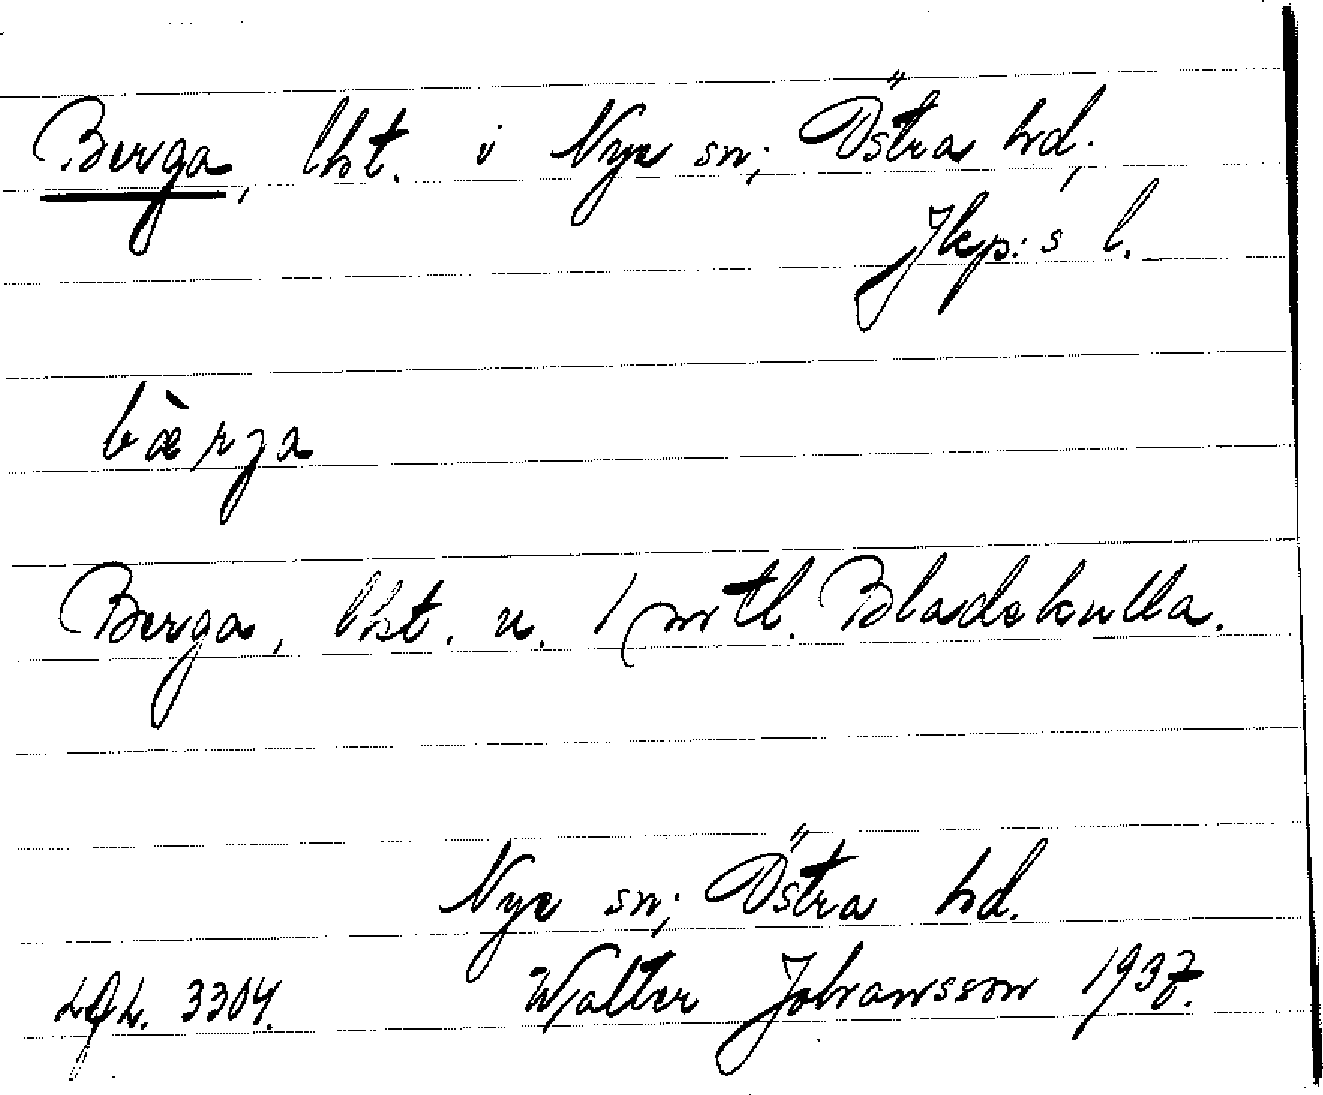 Berga, lht. i Nye sn; Östra hd;
Jkp:s l.
bàrga
Berga, lht. u. 1 mtl. Bladekulla.
Nye sn; Östra hd.
3304. Walter Johansson 1937.